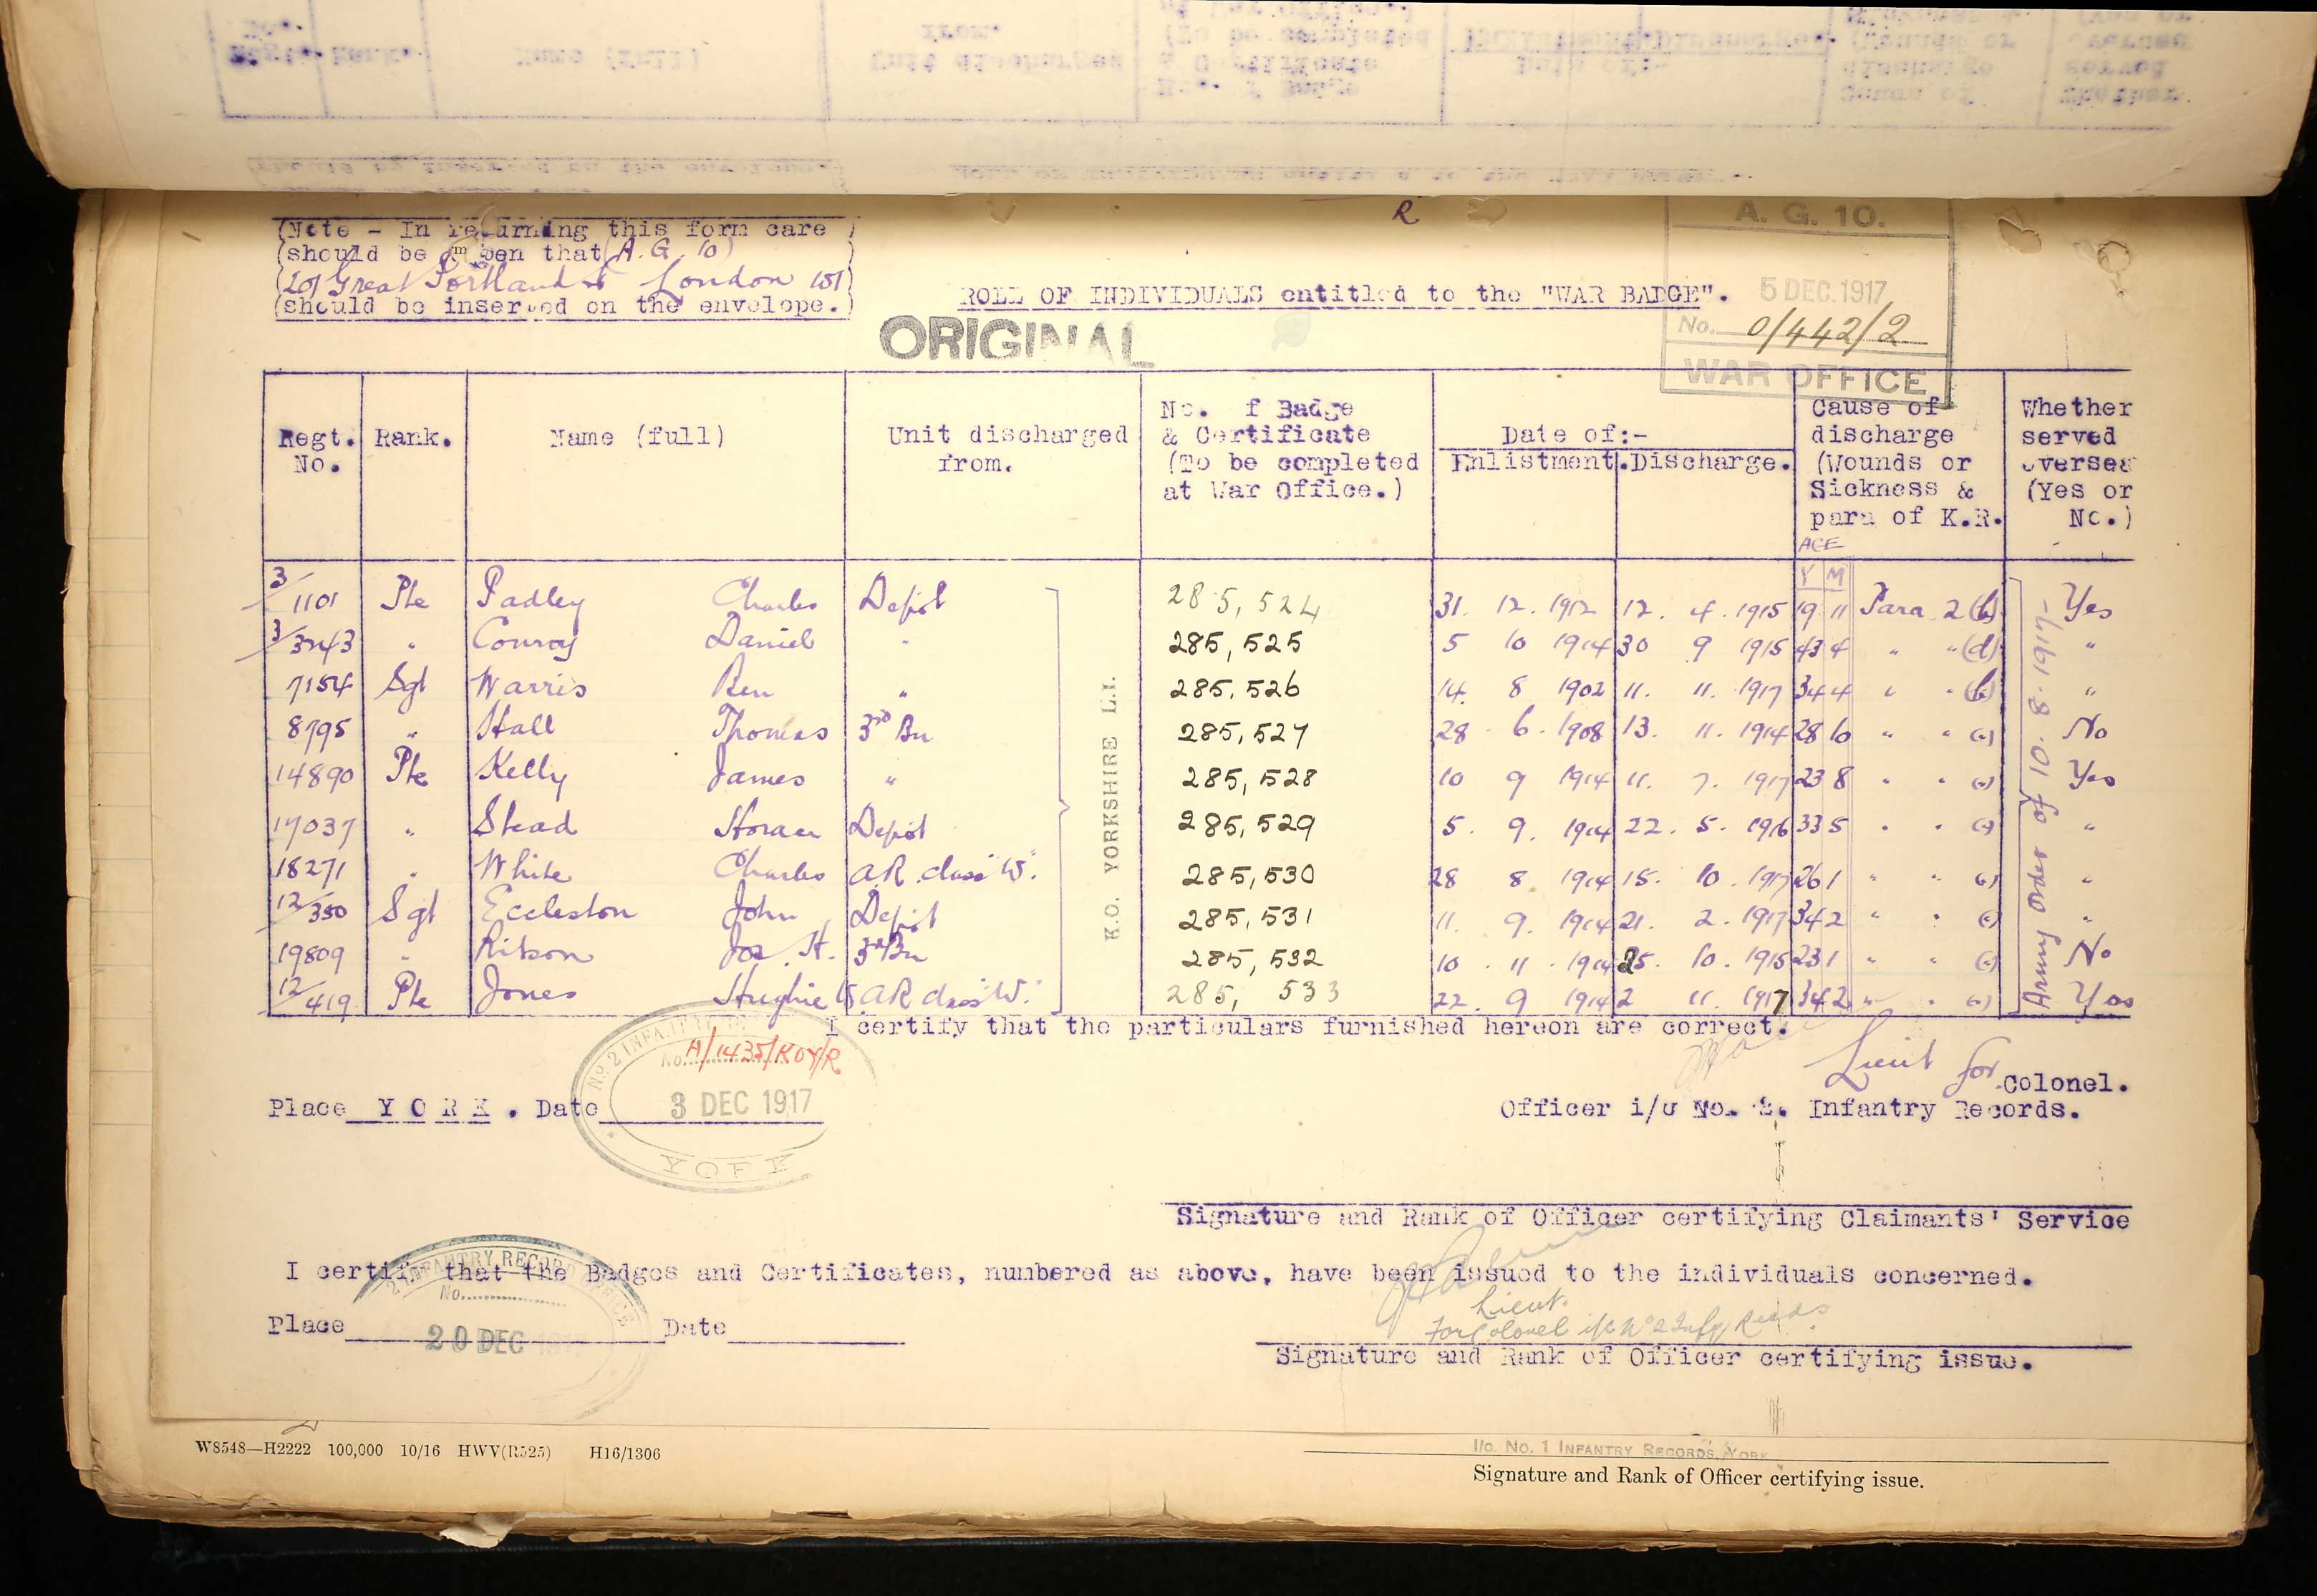 R
(Note - In returning this form care )
(should be seen that (A.G. 10)
(201 Great Portland St London W1)
(should be inserted on the envelope.)
A. G. 10.
5 DEC. 1917
No. 0/442/2
WAR OFFICE
ROLL OF INDIVIDUALS entitled to the "WAR BADGE".
ORIGINAL
Regt. No. Rank. Name (full) Unit discharged from. No. f Badge & Certificate (To be completed at War Office.) Date of:- Enlistment. Discharge. Cause of discharge (Wounds or Sickness & para of K.R. Whether served oversea (Yes or No.)
AGE
Y M
3/1101 Pte Padley Charles Depôt 285,524 31. 12. 1912 12. 4. 1915 19 11 Para 2(b) Yes
3/3243 " Conroy Daniel " 285,525 5 10 1914 30 9 1915 43 4 " "(d) "
7154 Sgt Warris Ben " 285,526 14. 8 1902 11. 11. 1917 34 4 " "(b) "
8795 " Hall Thomas 3rd Bn 285,527 28 . 6 . 1908 13. 11. 1914 28 10 " " No
14890 Pte Kelly James " 285,528 10 9 1914 11. 7. 1917 23 8 " " Yes
17037 " Stead Horace Depôt 285,529 5. 9. 1914 22. 5. 1916 33 5 " " "
18271 " White Charles A.R. class "W". 285,530 28 8 1914 15. 10. 1917 26 1 " " "
12/350 Sgt Eccleston John Depôt 285,531 11. 9. 1914 21. 2. 1917 34 2 " " "
19809 " Ritson Jos. H. 3rd Bn 285,532 10 . 11 . 1914 25. 10. 1915 23 1 " " No
12/419 Pte Jones Hughie AR class "W". 285, 533 22. 9 1914 2 11. 1917 34 2 " " Yes
K.O. YORKSHIRE L.I.
Army Order of 10.8.1917
I certify that the particulars furnished hereon are correct.
No. 2 INFANTRY
No. A/1435/KOY/R
3 DEC 1917
YORK
Lieut for Colonel.
Place YORK. Date
Officer i/c No. 2. Infantry Records.
Signature and Rank of Officer certifying Claimants' Service
I certify that the Badges and Certificates, numbered as above, have been issued to the individuals concerned.
2 INFANTRY RECORD OFFICE
No.
20 DEC
Lieut.
For Colonel i/c No 2 Infy Recds.
Place Date
Signature and Rank of Officer certifying issue.
W8548—H2222 100,000 10/16 HWV(R525) H16/1306
I/c. No. 1 INFANTRY RECORDS, YORK
Signature and Rank of Officer certifying issue.